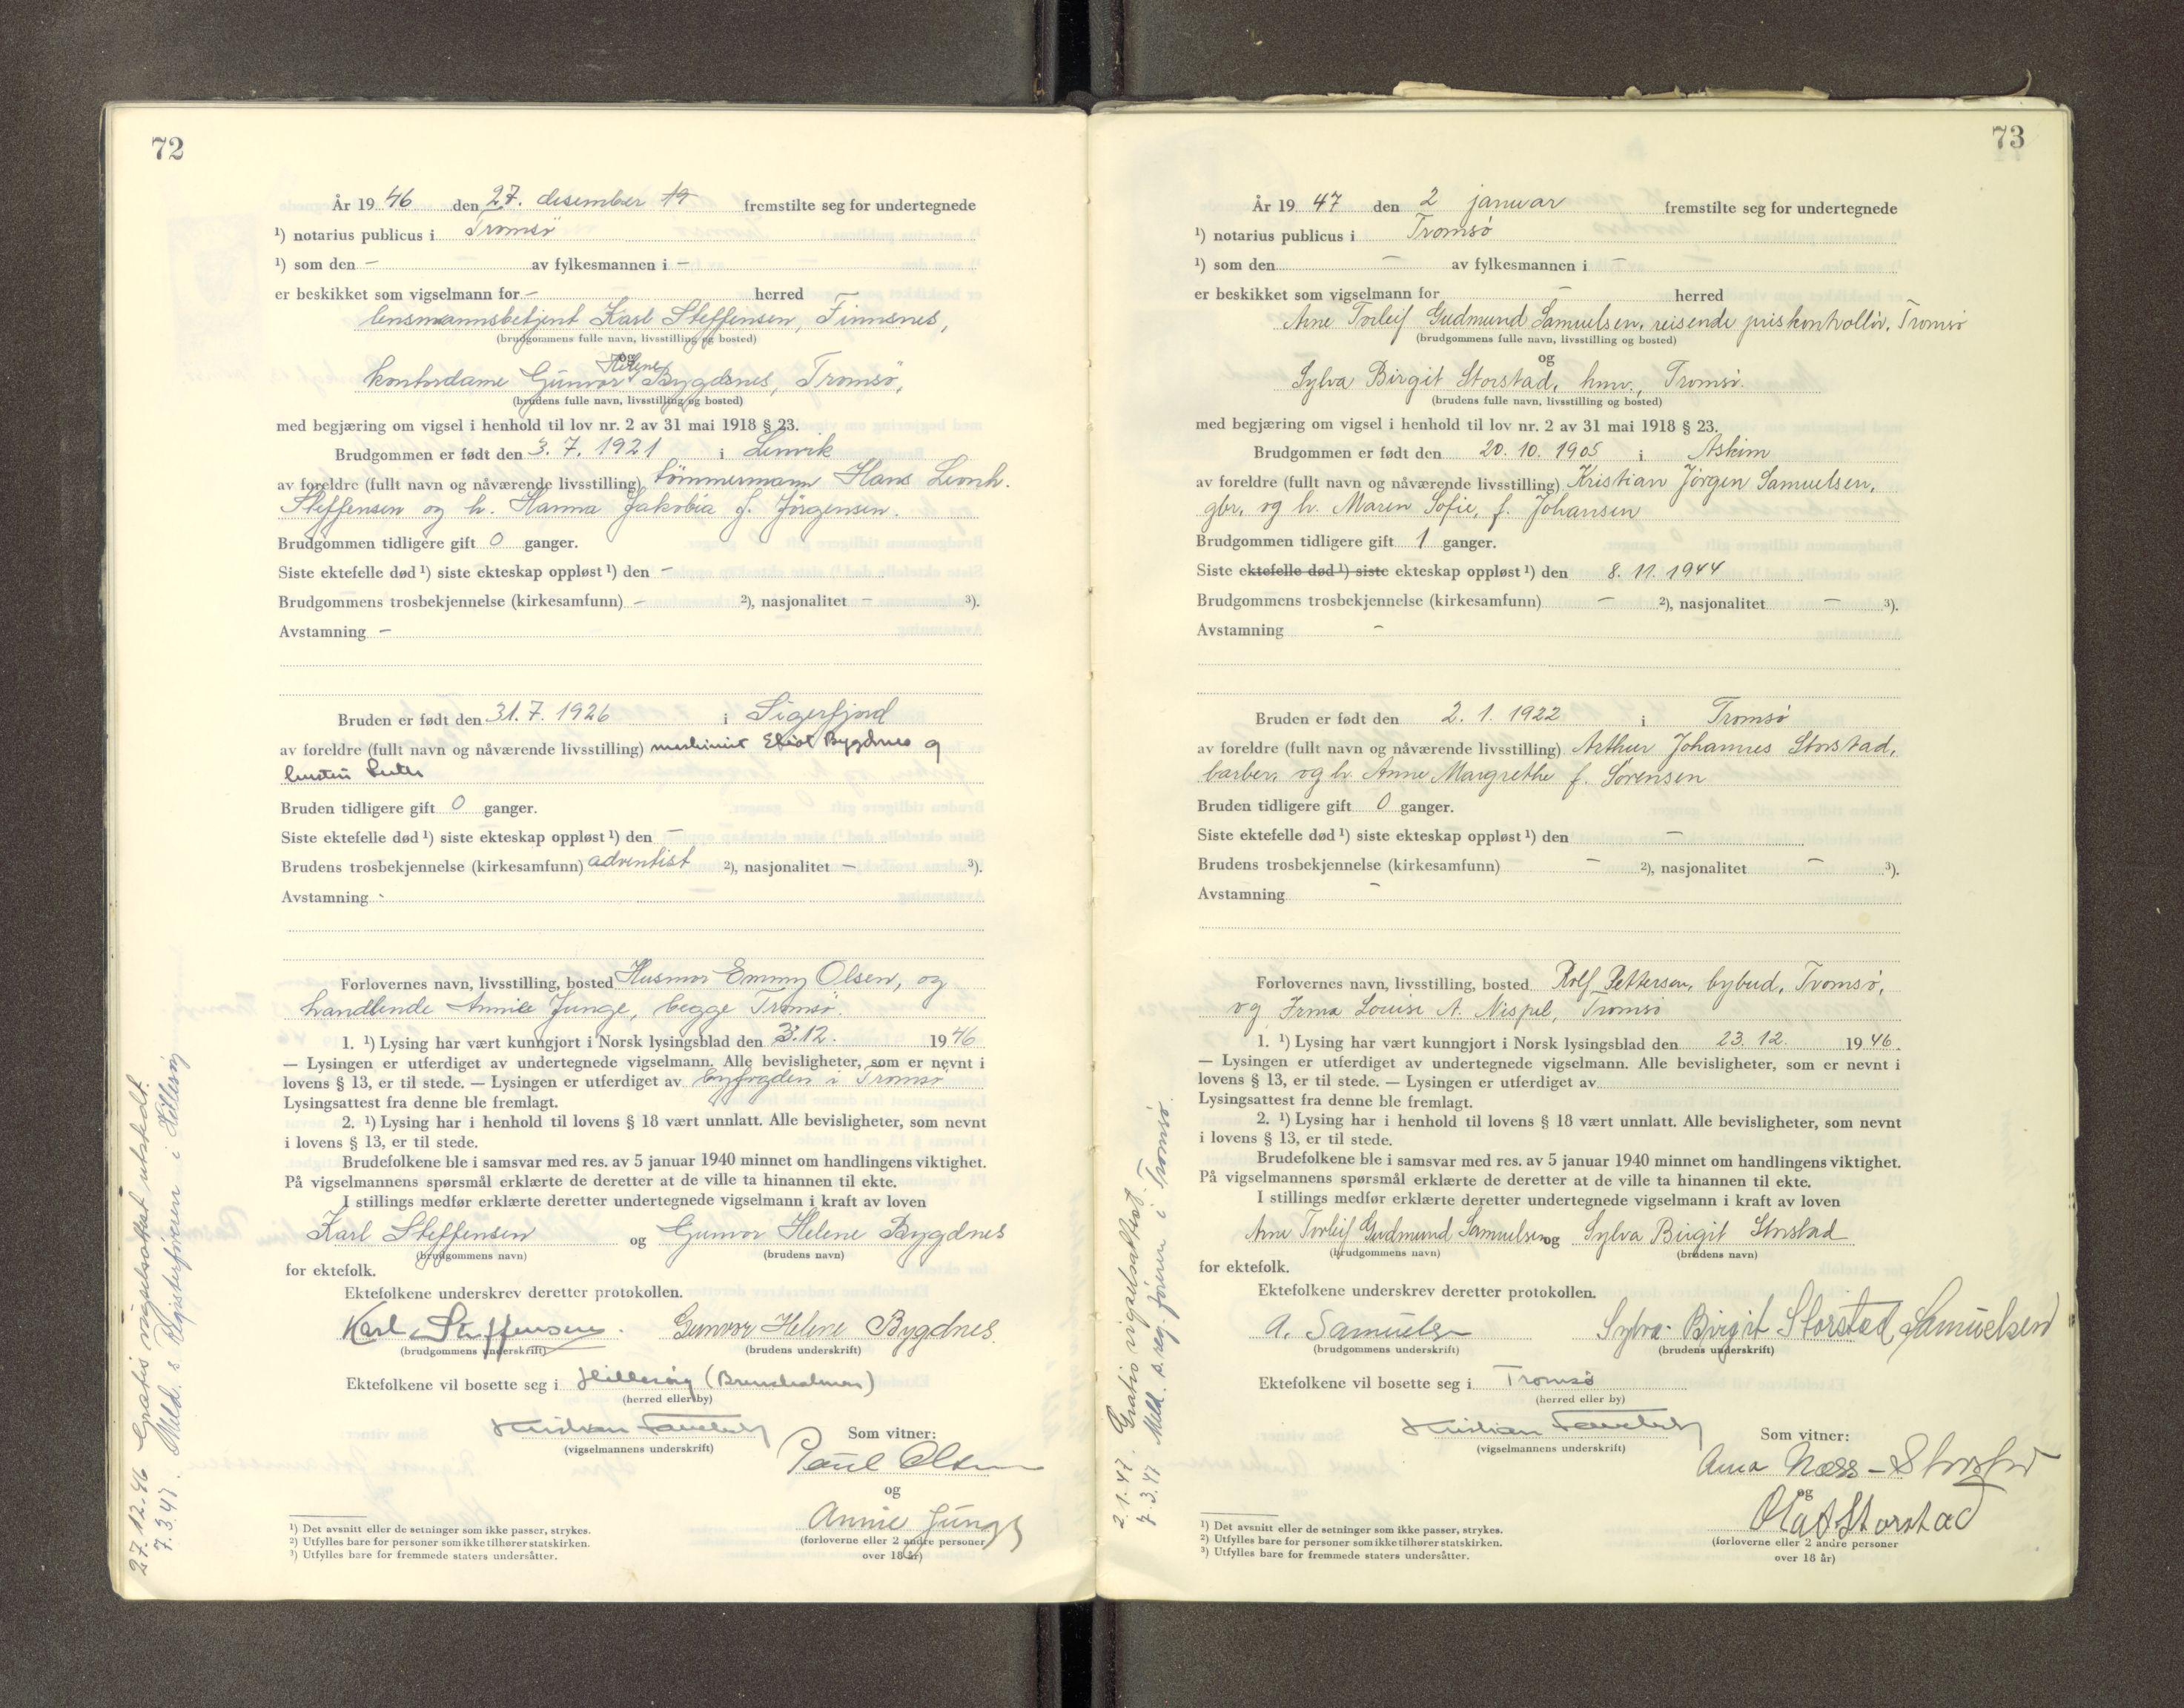 72
År 19 46 den 27. desember 19 fremstilte seg for undertegnede
¹) notarius publicus i Tromsö
¹) som den – av fylkesmannen i –
er beskikket som vigselmann for – herred
lensmannsbetjent Karl Steffensen, Finnsnes,
(brudgommens fulle navn, livsstilling og bosted)
og
Helene
kontordame Gunvor Bygdnes, Tromsö,
(brudens fulle navn, livsstilling og bosted)
med begjæring om vigsel i henhold til lov nr. 2 av 31 mai 1918 § 23.
Brudgommen er født den 3. 7. 1921 i Lenvik
av foreldre (fullt navn og nåværende livsstilling) tömmermann Hans Leonh.
Steffensen og h. Hanna Jakobia f. Jörgensen.
Brudgommen tidligere gift 0 ganger.
Siste ektefelle død ¹) siste ekteskap oppløst ¹) den –
Brudgommens trosbekjennelse (kirkesamfunn) – ²), nasjonalitet – ³).
Avstamning –
Bruden er født den 31. 7. 1926 i Sigerfjord
av foreldre (fullt navn og nåværende livsstilling) maskinist Bygdnes og
hustru
Bruden tidligere gift 0 ganger.
Siste ektefelle død ¹) siste ekteskap oppløst ¹) den –
Brudens trosbekjennelse (kirkesamfunn) adventist ²), nasjonalitet – ³).
Avstamning -
Forlovernes navn, livsstilling, bosted Husmor Emmy Olsen, og
handlende Annie Junge, begge Tromsö.
1. ¹) Lysing har vært kunngjort i Norsk lysingsblad den 3.12. 19 46
— Lysingen er utferdiget av undertegnede vigselmann. Alle bevisligheter, som er nevnt i
lovens § 13, er til stede. — Lysingen er utferdiget av byfogden i Tromsö
Lysingsattest fra denne ble fremlagt.
2. ¹) Lysing har i henhold til lovens § 18 vært unnlatt. Alle bevisligheter, som nevnt
i lovens § 13, er til stede.
Brudefolkene ble i samsvar med res. av 5 januar 1940 minnet om handlingens viktighet.
På vigselmannens spørsmål erklærte de deretter at de ville ta hinannen til ekte.
I stillings medfør erklærte deretter undertegnede vigselmann i kraft av loven
Karl Steffensen og Gunvor Helene Bygdnes
(brudgommens navn) (brudens navn)
for ektefolk.
Ektefolkene underskrev deretter protokollen.
Karl Steffensen. Gunvor Helene Bygdnes.
(brudgommens underskrift) (brudens underskrift)
Ektefolkene vil bosette seg i Hillesøy
(herred eller by)
Kristian
(vigselmannens underskrift)
Som vitner:
Paul Olsen
og
Annie Junge
(forloverne eller 2 andre personer
over 18 år)
¹) Det avsnitt eller de setninger som ikke passer, strykes.
²) Utfylles bare for personer som ikke tilhører statskirken.
³) Utfylles bare for fremmede staters undersåtter.
27.12.46 Gratis vigselsattest utstedt.
7.3.47. Meld. s. Registerföreren i Hillesöy
73
År 19 47 den 2 januar fremstilte seg for undertegnede
¹) notarius publicus i Tromsö
¹) som den – av fylkesmannen i –
er beskikket som vigselmann for – herred
Arne Torleif Gudmund Samuelsen, reisende priskontrollör, Tromsö
(brudgommens fulle navn, livsstilling og bosted)
og
Sylva Birgit Storstad, hmv., Tromsö.
(brudens fulle navn, livsstilling og bosted)
med begjæring om vigsel i henhold til lov nr. 2 av 31 mai 1918 § 23.
Brudgommen er født den 20. 10. 1905 i Askim
av foreldre (fullt navn og nåværende livsstilling) Kristian Jörgen Samuelsen,
gbr. og h. Maren Sofie, f. Johansen
Brudgommen tidligere gift 1 ganger.
Siste ektefelle død ¹) siste ekteskap oppløst ¹) den 8. 11. 1944
Brudgommens trosbekjennelse (kirkesamfunn) – ²), nasjonalitet – ³).
Avstamning –
Bruden er født den 2. 1. 1922 i Tromsö
av foreldre (fullt navn og nåværende livsstilling) Arthur Johannes Storstad,
barber, og h. Anne Margrethe f. Sörensen
Bruden tidligere gift 0 ganger.
Siste ektefelle død ¹) siste ekteskap oppløst ¹) den –
Brudens trosbekjennelse (kirkesamfunn) – ²), nasjonalitet – ³).
Avstamning –
Forlovernes navn, livsstilling, bosted Rolf Pettersen, bybud, Tromsö,
og Irma Louise A. Nispel, Tromsö
1. ¹) Lysing har vært kunngjort i Norsk lysingsblad den 23. 12. 19 46.
— Lysingen er utferdiget av undertegnede vigselmann. Alle bevisligheter, som er nevnt i
lovens § 13, er til stede. — Lysingen er utferdiget av
Lysingsattest fra denne ble fremlagt.
2. ¹) Lysing har i henhold til lovens § 18 vært unnlatt. Alle bevisligheter, som nevnt
i lovens § 13, er til stede.
Brudefolkene ble i samsvar med res. av 5 januar 1940 minnet om handlingens viktighet.
På vigselmannens spørsmål erklærte de deretter at de ville ta hinannen til ekte.
I stillings medfør erklærte deretter undertegnede vigselmann i kraft av loven
Arne Torleif Gudmund Samuelsen og Sylva Birgit Storstad
(brudgommens navn) (brudens navn)
for ektefolk.
Ektefolkene underskrev deretter protokollen.
A. Samuelsen Sylva Birgit Storstad Samuelsen
(brudgommens underskrift) (brudens underskrift)
Ektefolkene vil bosette seg i Tromsø
(herred eller by)
Kristian
(vigselmannens underskrift)
Som vitner:
Anna Næss-Storstad
og
Olaf Storstad
(forloverne eller 2 andre personer
over 18 år)
¹) Det avsnitt eller de setninger som ikke passer, strykes.
²) Utfylles bare for personer som ikke tilhører statskirken.
³) Utfylles bare for fremmede staters undersåtter.
2.1.47. Gratis vigselsattest.
7.3.47 Meld. s. reg. föreren i Tromsö.